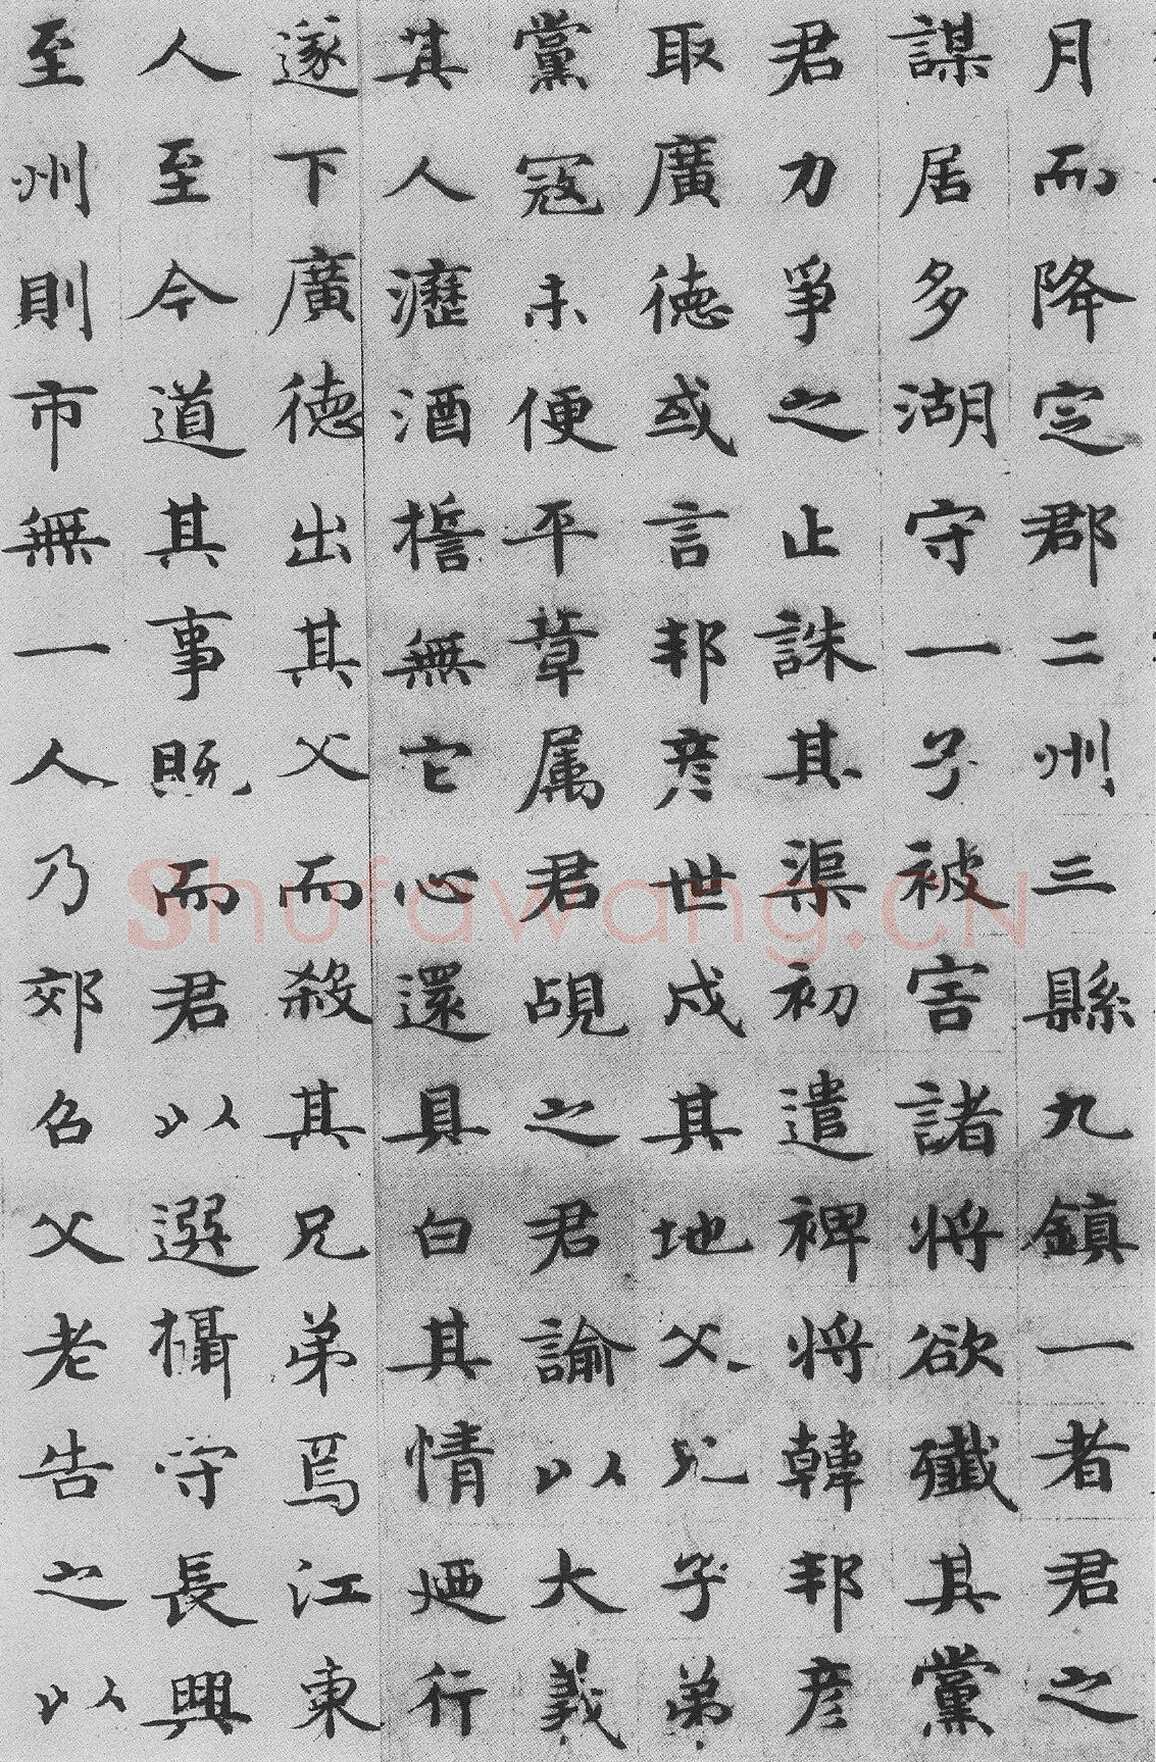 月而降定郡二州三縣九鎮一者君之
謀居多湖守一子被害諸将欲殲其黨
君力爭之止誅其渠初遣裨将韓邦彦
取廣徳或言邦彦世戍其地父兄子弟
黨寇未便平章属君覘之君諭以大義
其人瀝酒誓無它心還具白其情廼行
遂下廣徳出其父而殺其兄弟焉江東
人至今道其事既而君以選攝守長興
至州則市無一人乃郊召父老告之以
Shufawang.CN